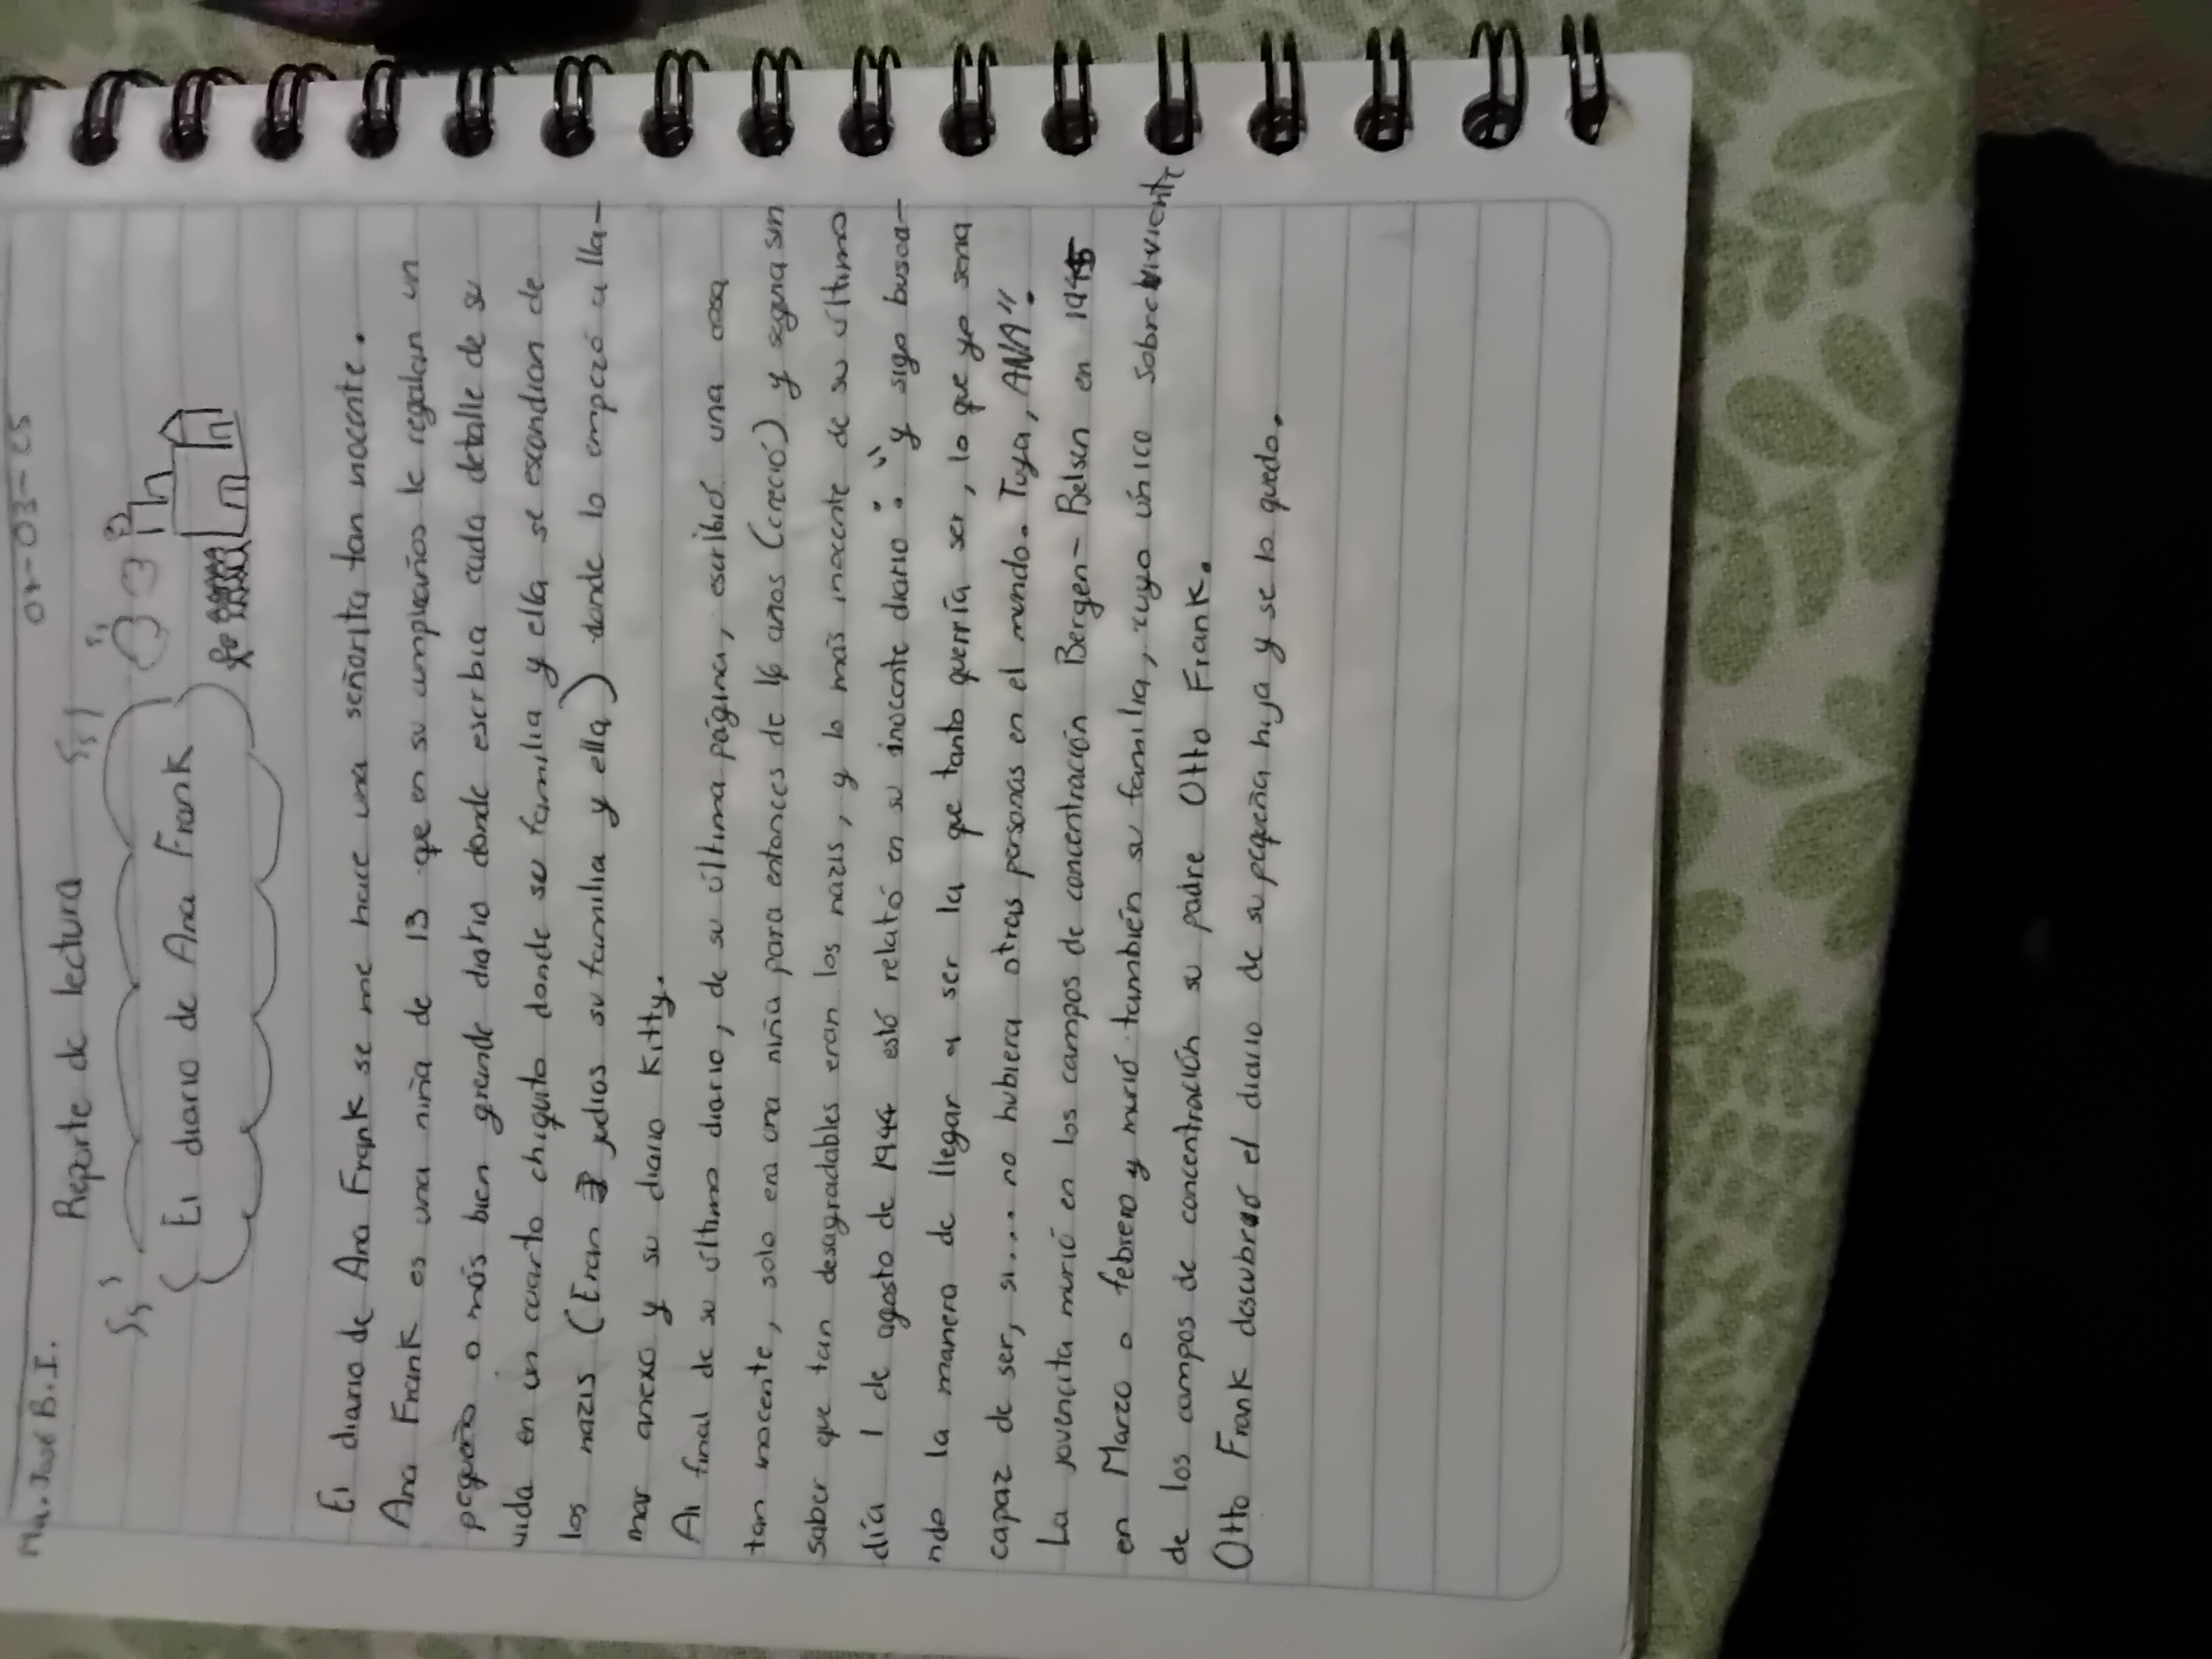 Ma. José B.I.
Reporte de lectura
El diario de Ana Frank
El diario de Ana Frank se me hace una señorita tan inocente.
Ana Frank es una niña de 13 que en su cumpleaños le regalan un
pequeño o más bien grande diario donde escribia cada detalle de su
vida en un cuarto chiquito donde su familia y ella se escondian de
los nazis (Eran judios su familia y ella) donde lo empezó a lla-
mar anexo y su diario Kitty.
Al final de su último diario, de su última página, escribió una cosa
tan inocente, solo era una niña para entonces de 16 años (creció) y seguia sin
saber que tan desagradables eran los nazis, y lo más inocente de su último
día 1 de agosto de 1944 esté relató en su inocente diario: "y sigo busca-
ndo la manera de llegar a ser la que tanto querría ser, lo que yo seria
capaz de ser, si... no hubiera otras personas en el mundo. Tuya, ANA".
La jovencita murió en los campos de concentración Bergen-Belsen en 1945
en Marzo o febrero y murió también su familia, cuyo único sobreviviente
de los campos de concentración su padre Otto Frank.
Otto Frank descubrió el diario de su pequeña hija y se lo quedo.